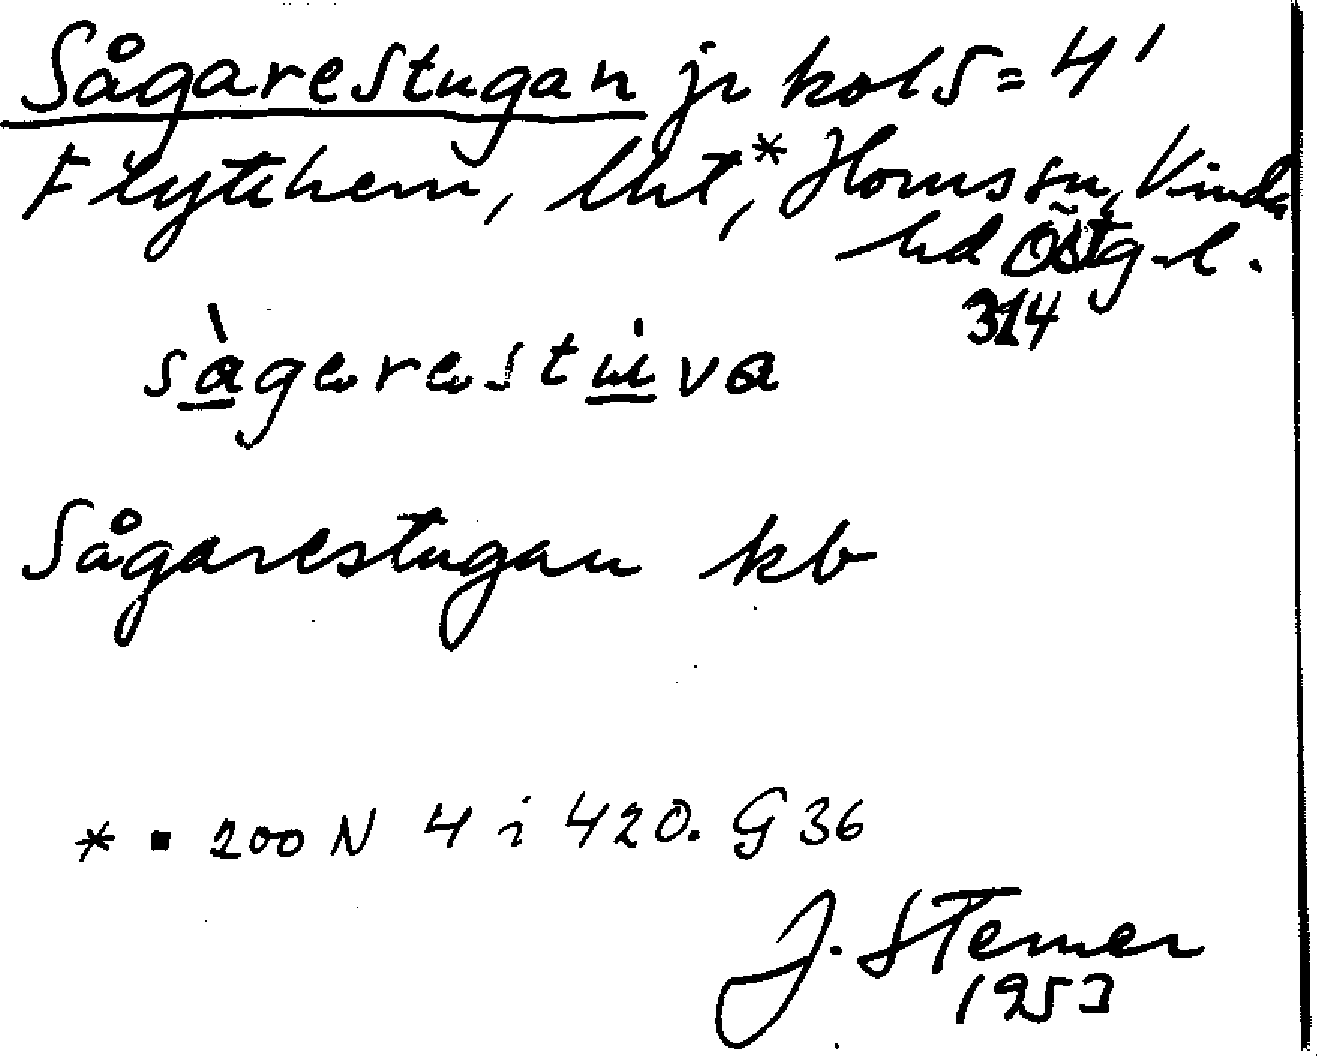 Sågarestugan jr kol 5 = 4'
Flytthem, lht,* Horns sn, Kinda
hd Östg-l.
314
sàgarastúva
Sågarestugan kb
* ▪ 200 N 4 i 420. G 36
J. Sterner
1953